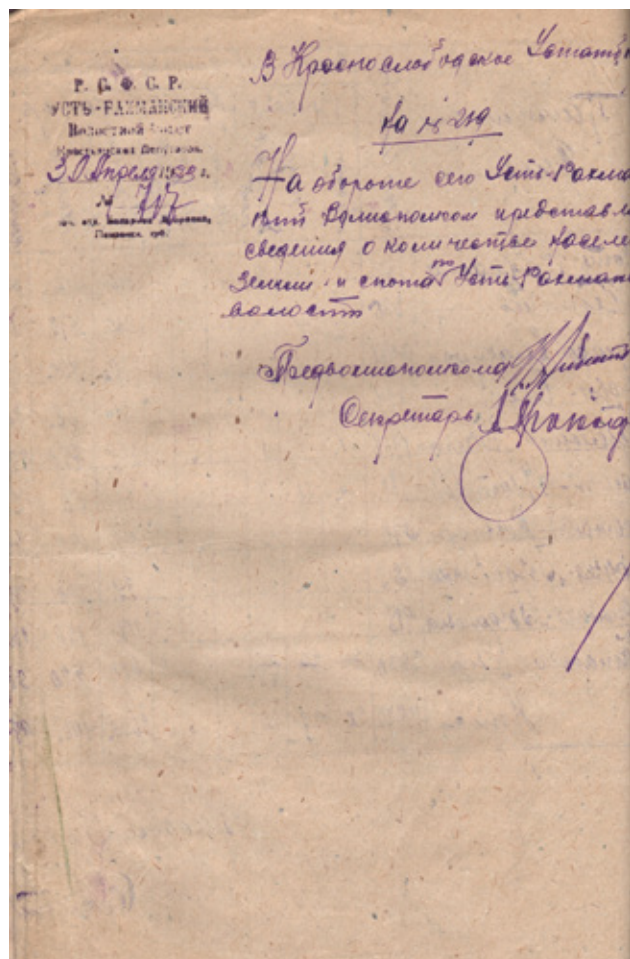 Р. С. Ф. С. Р.
УСТЬ-РАХМАНСКИЙ
Волостной Совет
Крестьянских Депутатов.
30 Апреля 192 г.
№ 717
Пензенск. губ.
В Краснослободское Устатб
На № 219
На обороте сего Усть-Рахма
кий Волисполком представля
сведения о количестве населе
земли и скота по Усть-Рахман
волости
Предволисполкома
Секретарь